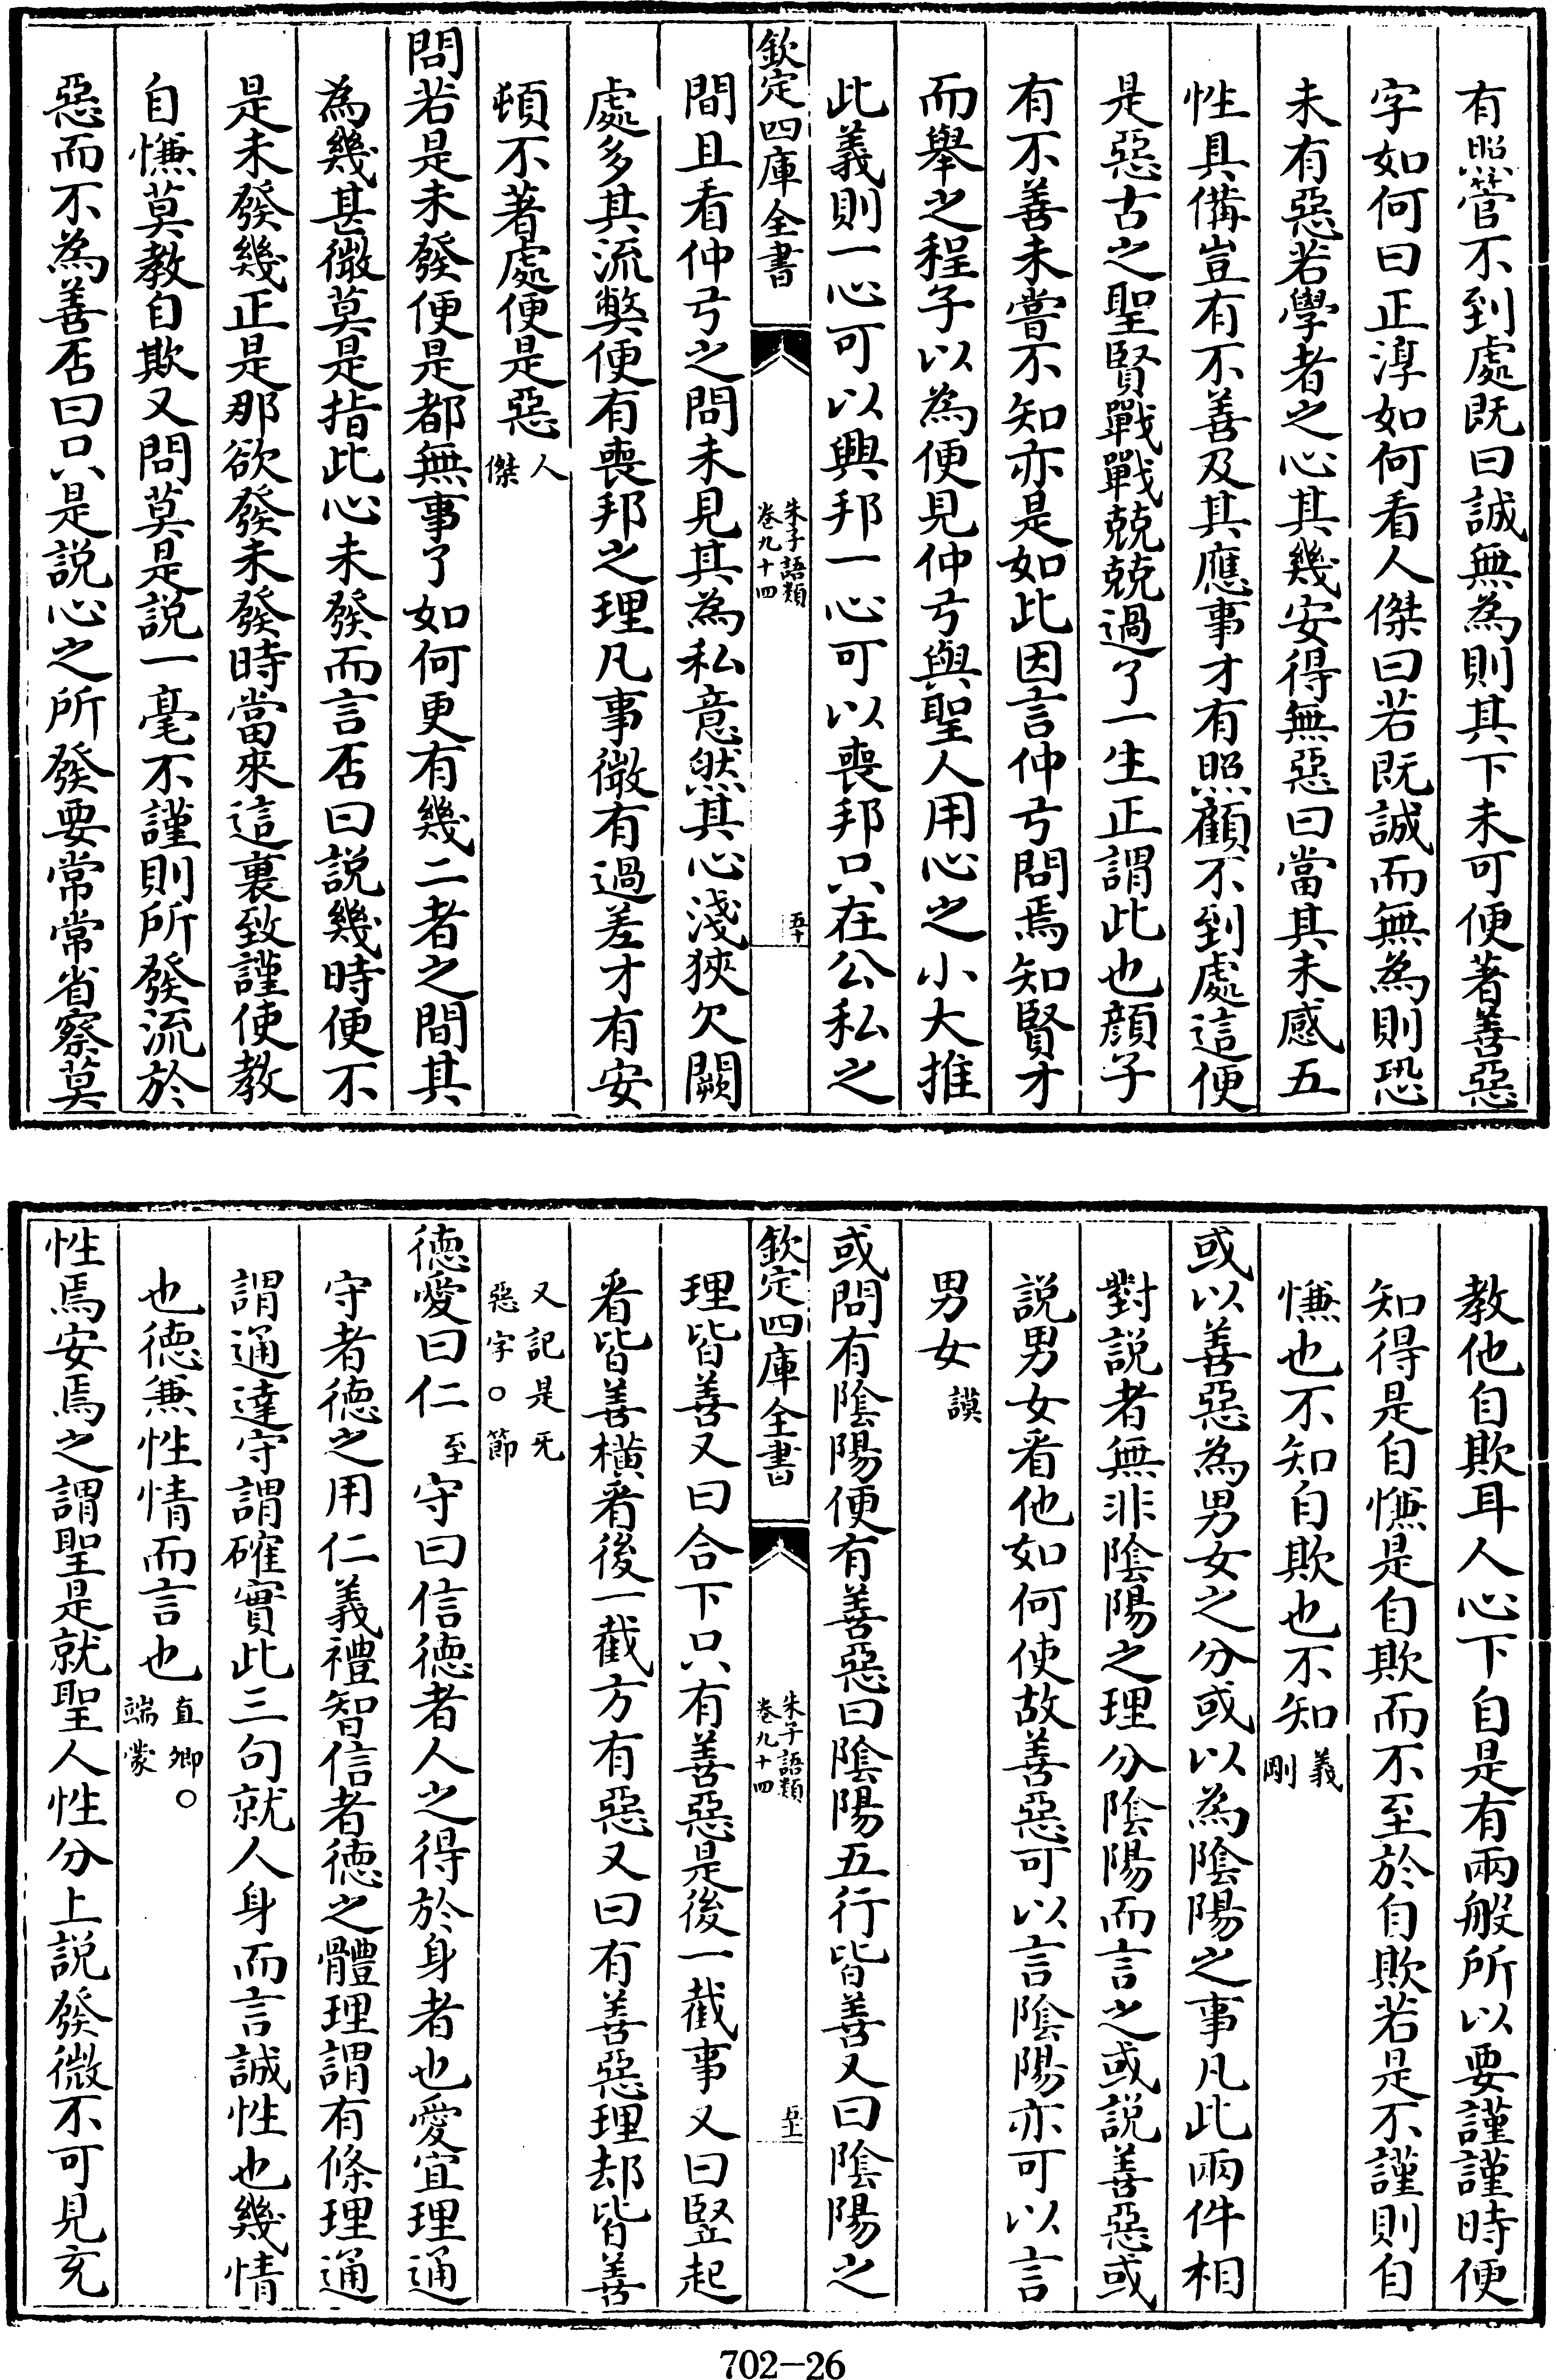 有照管不到處既曰誠無為則其下未可便著善惡
字如何曰正淳如何看人傑曰若既誠而無為則恐
未有惡若學者之心其幾安得無惡曰當其未感五
性具備豈有不善及其應事才有照顧不到處這便
是惡古之聖賢戰戰兢兢過了一生正謂此也顔子
有不善未嘗不知亦是如此因言仲弓問焉知賢才
而舉之程子以為便見仲弓與聖人用心之小大推
此義則一心可以興邦一心可以喪邦只在公私之
欽定四庫全書
朱子語類
卷九十四
五十
間且看仲弓之問未見其為私意然其心淺狹欠闕
處多其流弊便有喪邦之理凡事微有過差才有安
頓不著處便是惡人傑
問若是未發便是都無事了如何更有幾二者之間其
為幾甚微莫是指此心未發而言否曰説幾時便不
是未發幾正是那欲發未發時當來這裏致謹使教
自慊莫教自欺又問莫是説一毫不謹則所發流於
惡而不為善否曰只是説心之所發要常常省察莫
教他自欺耳人心下自是有兩般所以要謹謹時便
知得是自慊是自欺而不至於自欺若是不謹則自
慊也不知自欺也不知義剛
或以善惡為男女之分或以為陰陽之事凡此兩件相
對説者無非陰陽之理分陰陽而言之或説善惡或
説男女看他如何使故善惡可以言陰陽亦可以言
男女謨
或問有陰陽便有善惡曰陰陽五行皆善又曰陰陽之
欽定四庫全書
朱子語類
卷九十四
五十一
理皆善又曰合下只有善惡是後一截事又曰竪起
看皆善横看後一截方有惡又曰有善惡理却皆善
又記是无
惡字○節
德愛曰仁至守曰信德者人之得於身者也愛宜理通
守者德之用仁義禮智信者德之體理謂有條理通
謂通達守謂確實此三句就人身而言誠性也幾情
也德兼性情而言也直卿○端蒙
性焉安焉之謂聖是就聖人性分上説發微不可見充
702-26